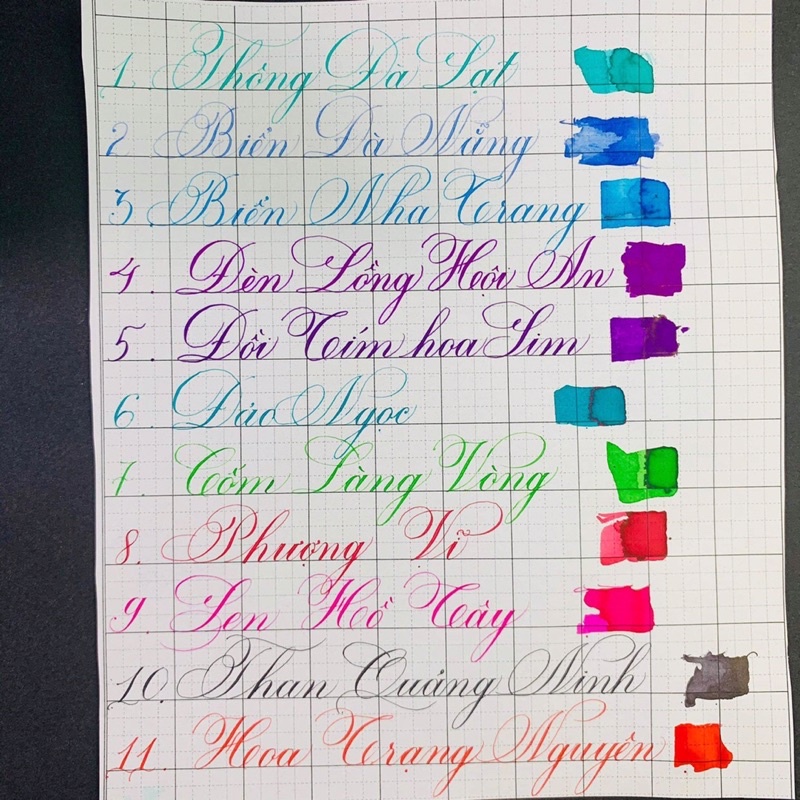 1. Thông Đà Lạt
2 Biển Đà Nẵng
3. Biển Nha Trang
4. Đèn Lồng Hội An
5. Đồi Tím hoa Sim
6. Đảo Ngọc
7. Cốm Làng Vòng
8. Phượng Vĩ
9. Sen Hồ Tây
10. Than Quảng Ninh
11. Hoa Trạng Nguyên